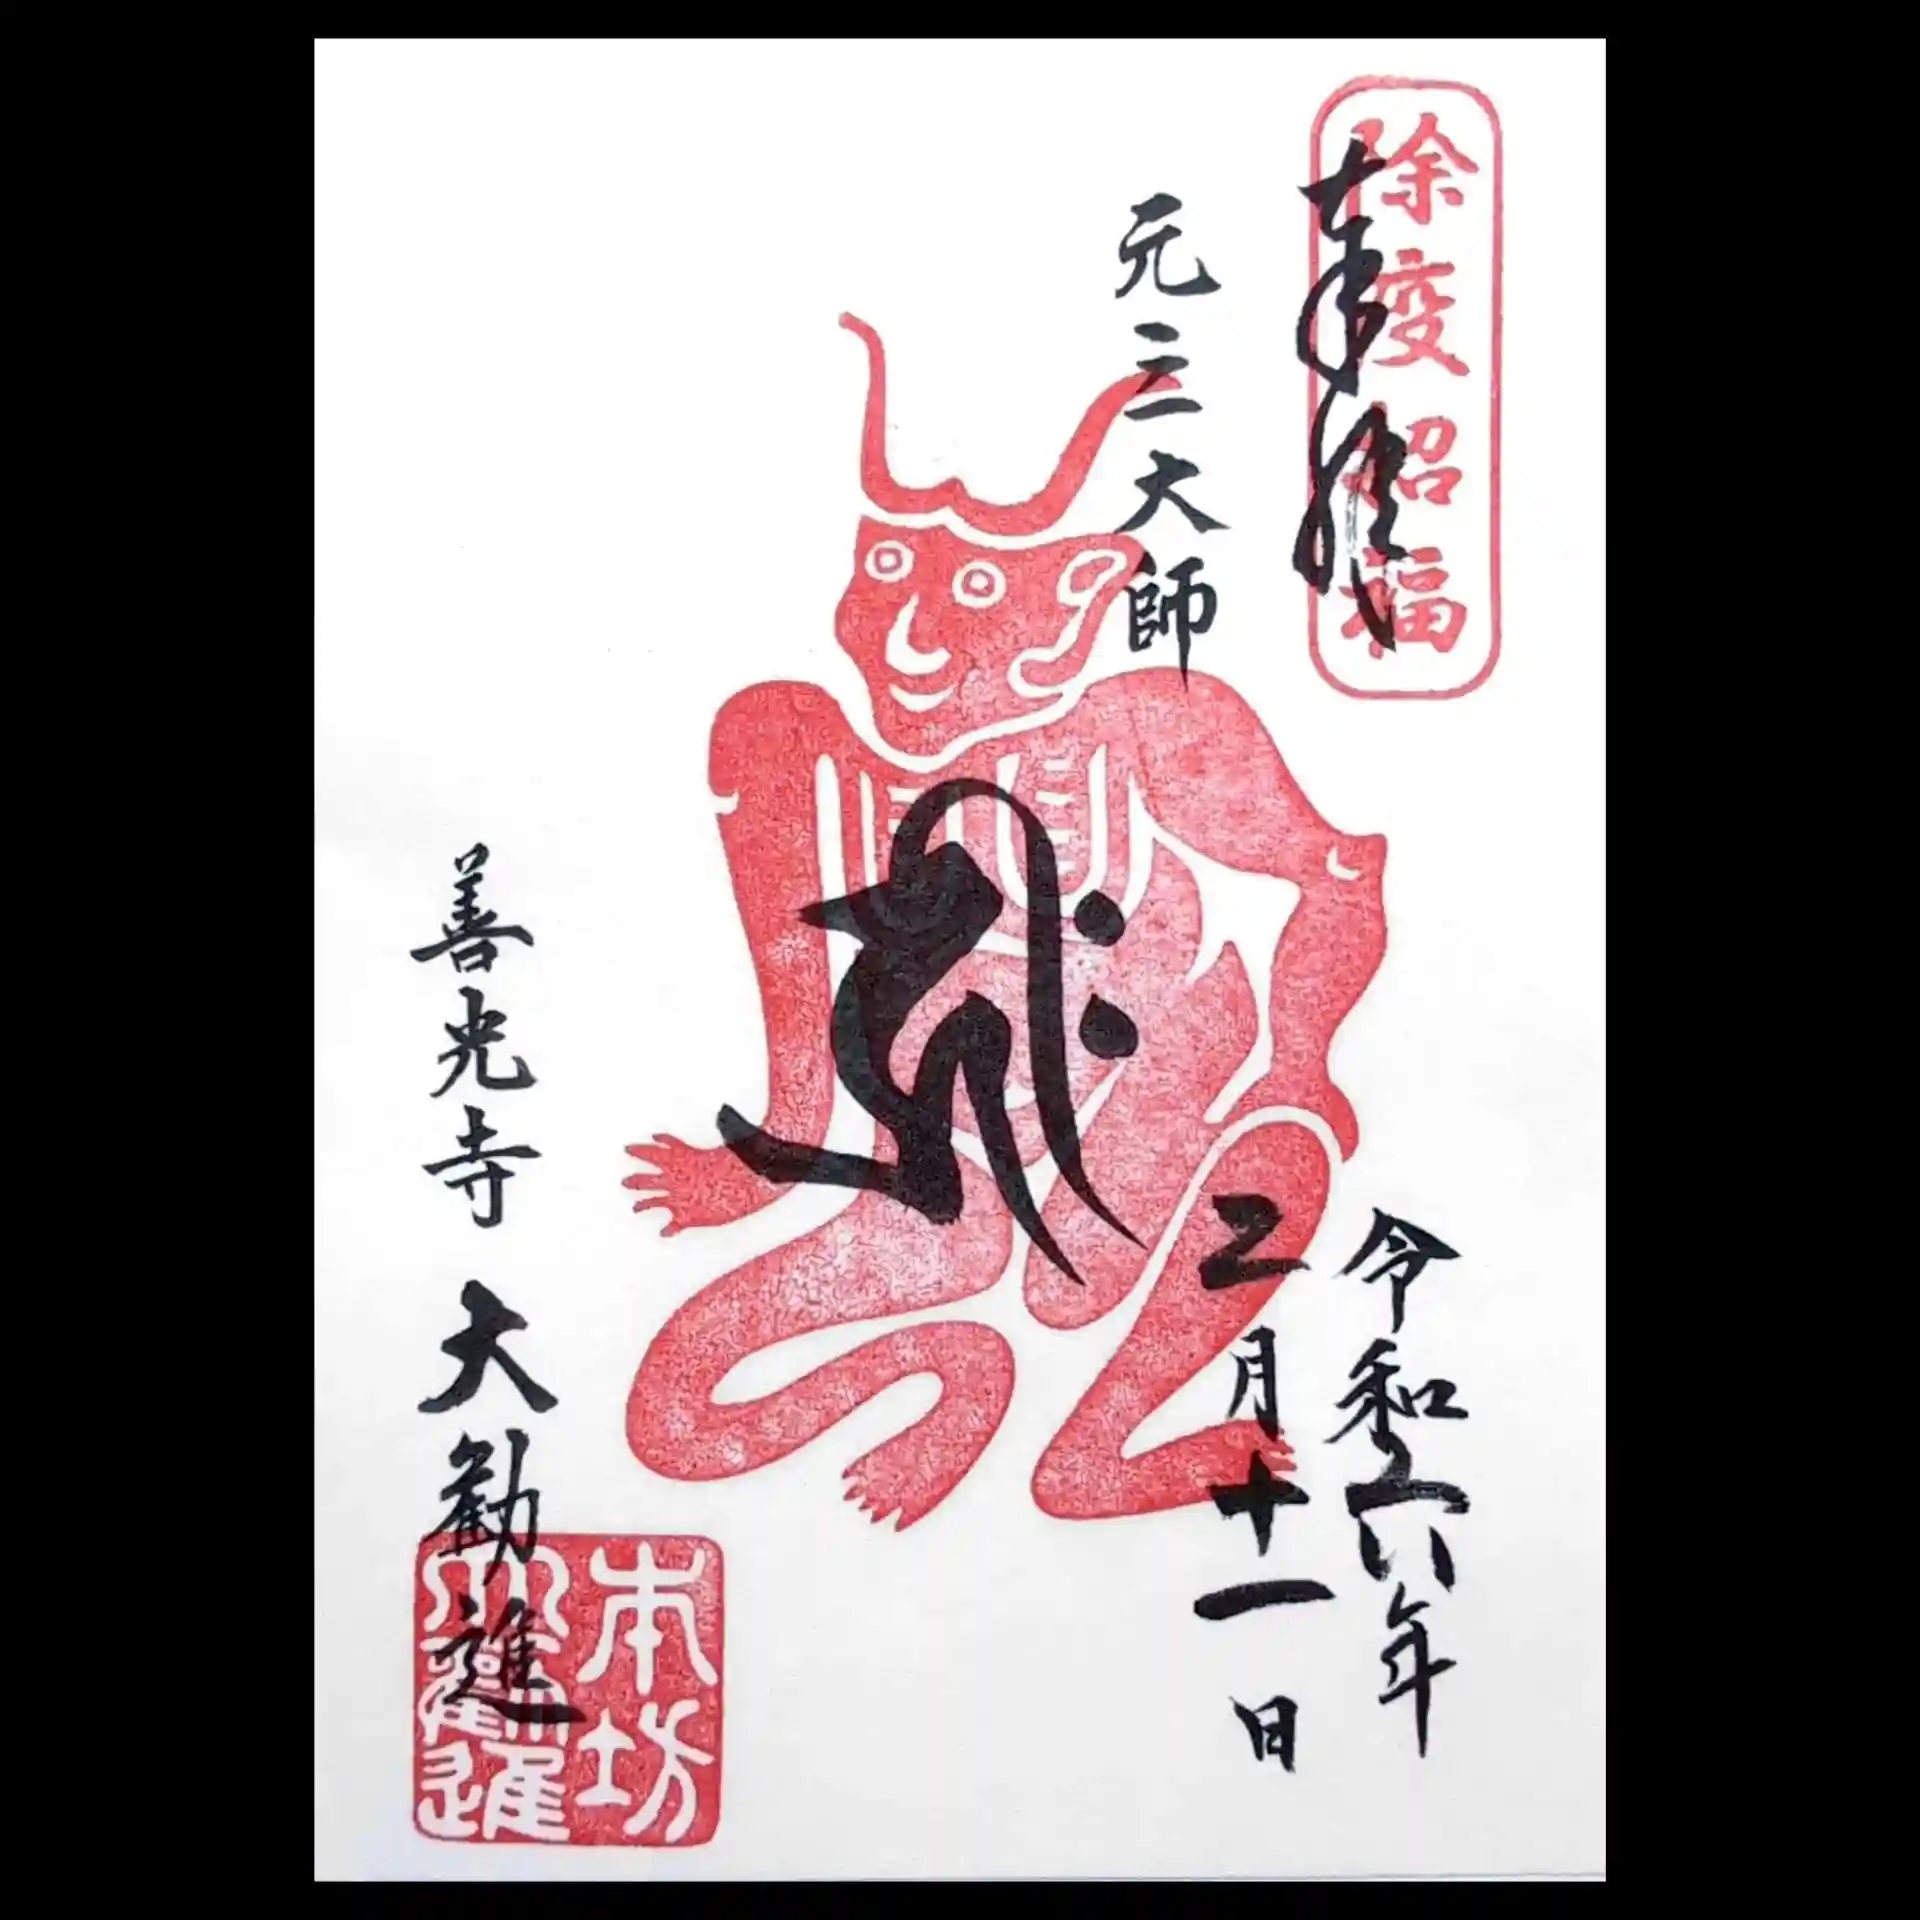 除疫招福
奉拝
令和六年
二月十一日
元三大師
𑖮𑖿𑖨𑖱𑖾
善光寺 大勧進
本坊
大勸進